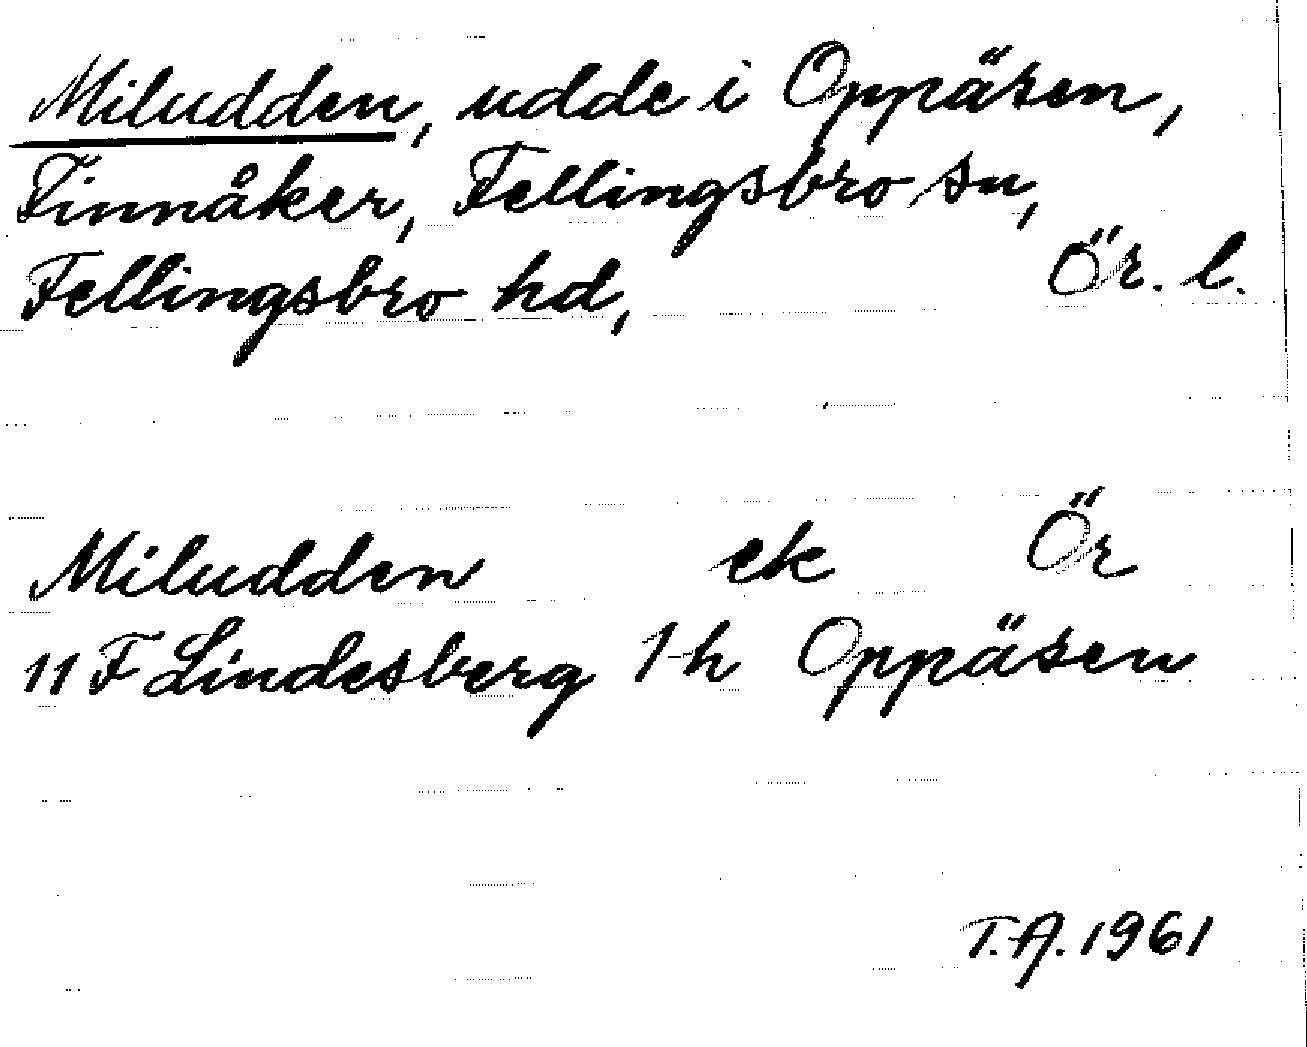 Miludden, udde i Oppäsen,
Finnåker, Fellingsbro sn,
Fellingsbro hd, Ör. l.
Miludden ek Ör
11 F Lindesberg 1-h Oppäsen
T.A. 1961